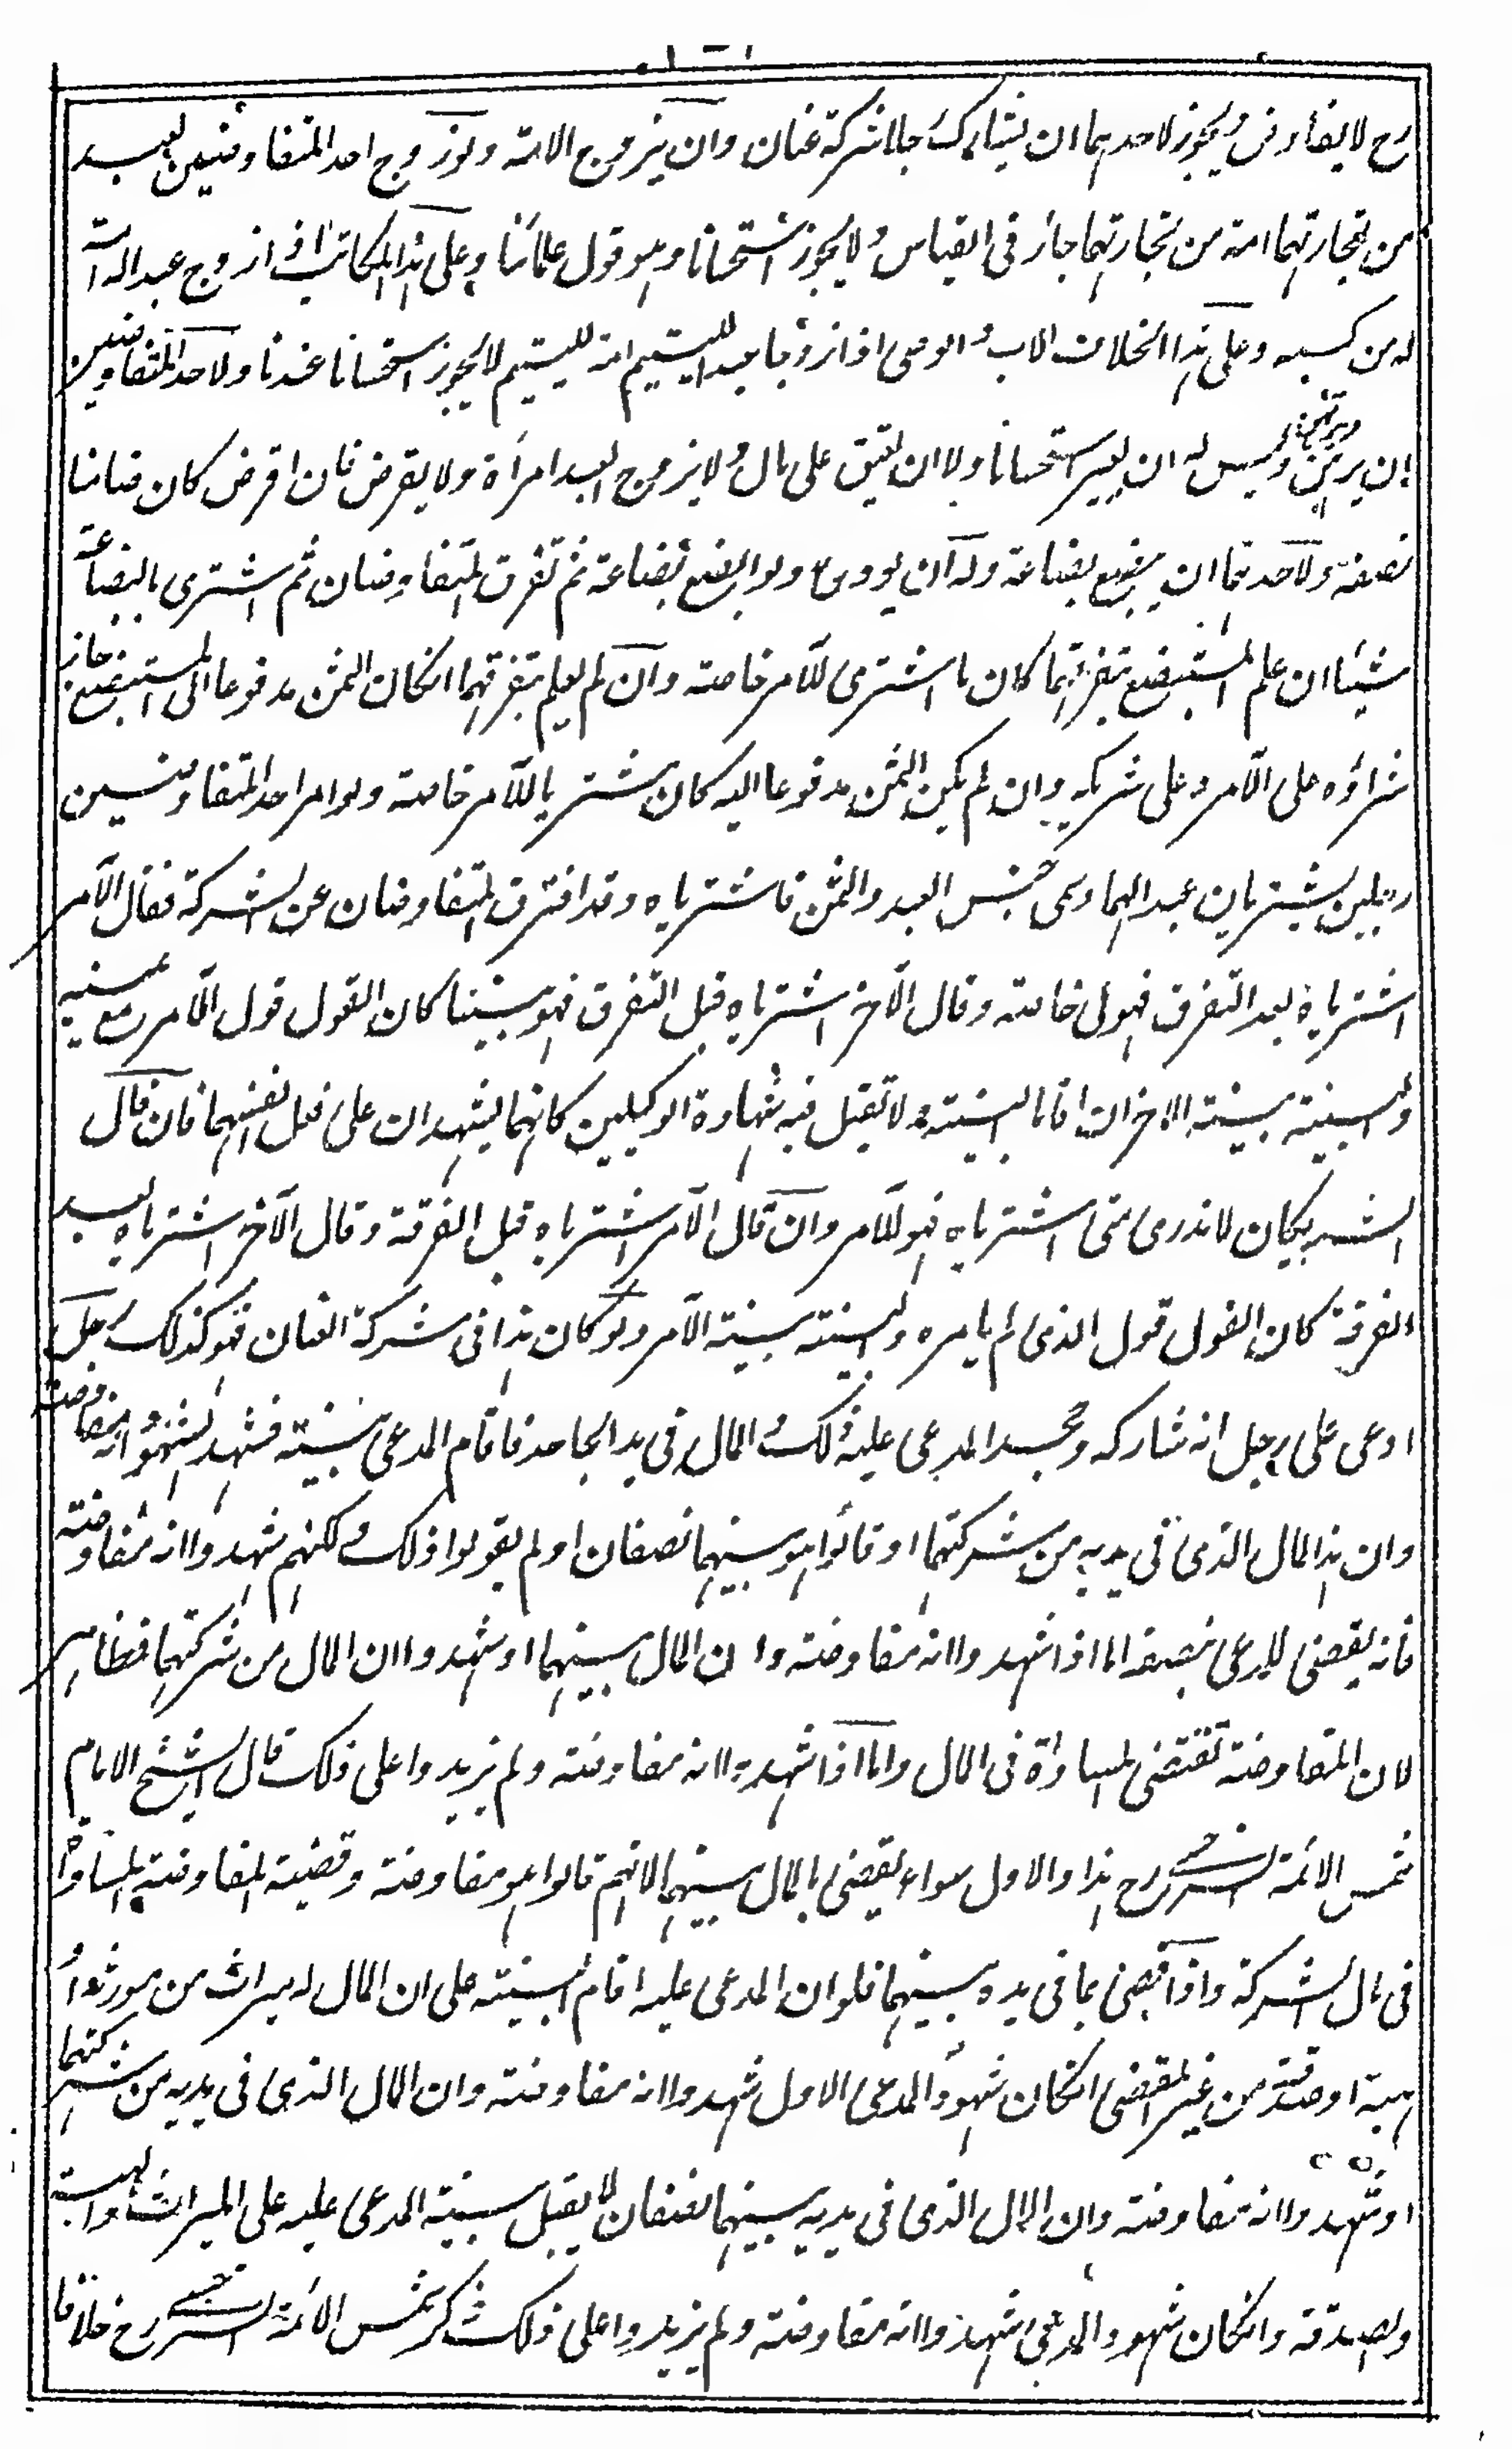 رح لا يفاوض ويجوز لاحدهما ان يشارك رجلا شركة عنان وان يزوج الامة ولو زوج احد المتفاوضين لعبد
من تجارتهما امة من تجارتهما جاز فى القياس ولا يجوز استحسانا وهو قول علمائنا وعلى هذا المكاتب اذا زوج عبدا له امة
له من كسبه وعلى هذا الخلاف الاب والوصى اذا زوجا عبد اليتيم امة لليتيم لا يجوز استحسانا عندنا ولاحد المتفاوضين
ان يرهن ويرتهن وليس له ان يعير استحسانا ولا ان يعتق على مال ولا يزوج العبد امرأة ولا يقرض فان اقرض كان ضامنا
نصفه ولاحدهما ان يبضع بضاعة وله ان يودع ولو ابضع بضاعة ثم تفرق المتفاوضان ثم اشترى بالبضاعة
شيئا ان علم المستبضع بتفرقهما كان ما اشترى للآمر خاصة وان لم يعلم بتفرقهما انكان الثمن مدفوعا الى المستبضع جاز
شراؤه على الآمر وعلى شريكه وان لم يكن الثمن مدفوعا اليه كان مشتريا للآمر خاصة ولو امر احد المتفاوضين
رجلين يشتريان عبدا لهما وسمى جنس العبد والثمن فاشترياه وقد افترق المتفاوضان عن الشركة فقال الآمر
اشترياه بعد التفرق فهو لى خاصة وقال الآخر اشترياه قبل التفرق فهو بيننا كان القول قول الآمر مع يمينه
والبينة بينة الاخر ان اقاما البينة ولا تقبل فيه شهادة الوكيلين كانهما يشهدان على فعل انفسهما فان قال
الشريكان لا ندرى متى اشترياه فهو للآمر وان قال الآمر اشترياه قبل الفرقة وقال الآخر اشترياه بعد
الفرقة كان القول قول الذى لم يامره والبينة بينة الآمر ولو كان هذا فى شركة العنان فهو كذلك رجل
ادعى على رجل انه شاركه وجحد المدعى عليه ذلك والمال فى يد الجاحد فاقام المدعى بينة فشهد الشهود انه مفاوضة
وان هذا المال الذى فى يديه من شركتهما او قالوا هو بينهما نصفان او لم يقولوا ذلك ولكنهم شهدوا انه مفاوضة
فانه يقضى للمدعى بنصفه اما اذا شهدوا انه مفاوضة وان المال بينهما او شهدوا ان المال من شركتهما فظاهر
لان المفاوضة تقتضى المساواة فى المال واما اذا شهدوا انه مفاوضة ولم يزيدوا على ذلك قال الشيخ الامام
شمس الائمة السرخسى رح هذا والاول سواء يقضى بالمال بينهما لانهم قالوا هو مفاوضة وقضية المفاوضة المساواة
فى مال الشركة واذا قضى بما فى يده بينهما فلو ان المدعى عليه اقام البينة على ان المال له ميراث من مورثه او
هبة او صدقة من غير المقضى انكان شهود المدعى الاول شهدوا انه مفاوضة وان المال الذى فى يديه من شركتهما
او شهدوا انه مفاوضة وان المال الذى فى يديه بينهما نصفان لا يقبل بينة المدعى عليه على الميراث والهبة
والصدقة وانكان شهود المدعى شهدوا انه مفاوضة ولم يزيدوا على ذلك ذكر شمس الائمة السرخسى رح خلافا